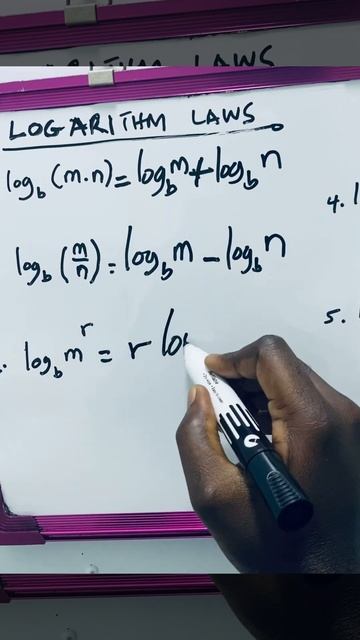 LOGARITHM LAWS
log_b (m.n) = log_b m + log_b n
log_b (m/n) = log_b m - log_b n
log_b m^r = r lo
4.
5.